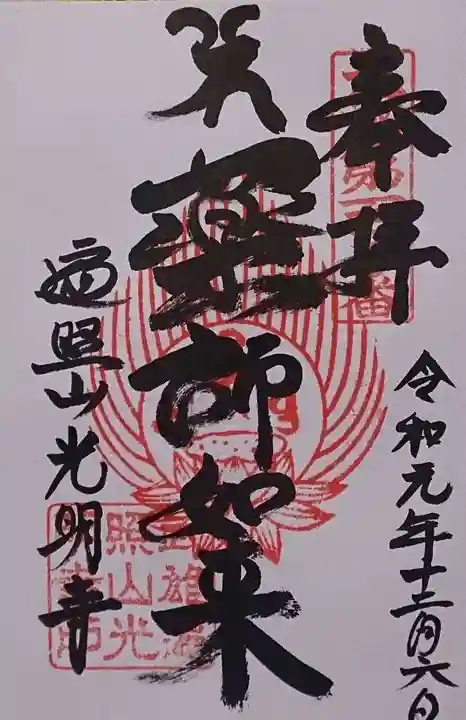 奉拝
令和元年十二月六日
薬師如来
遍照山光明寺